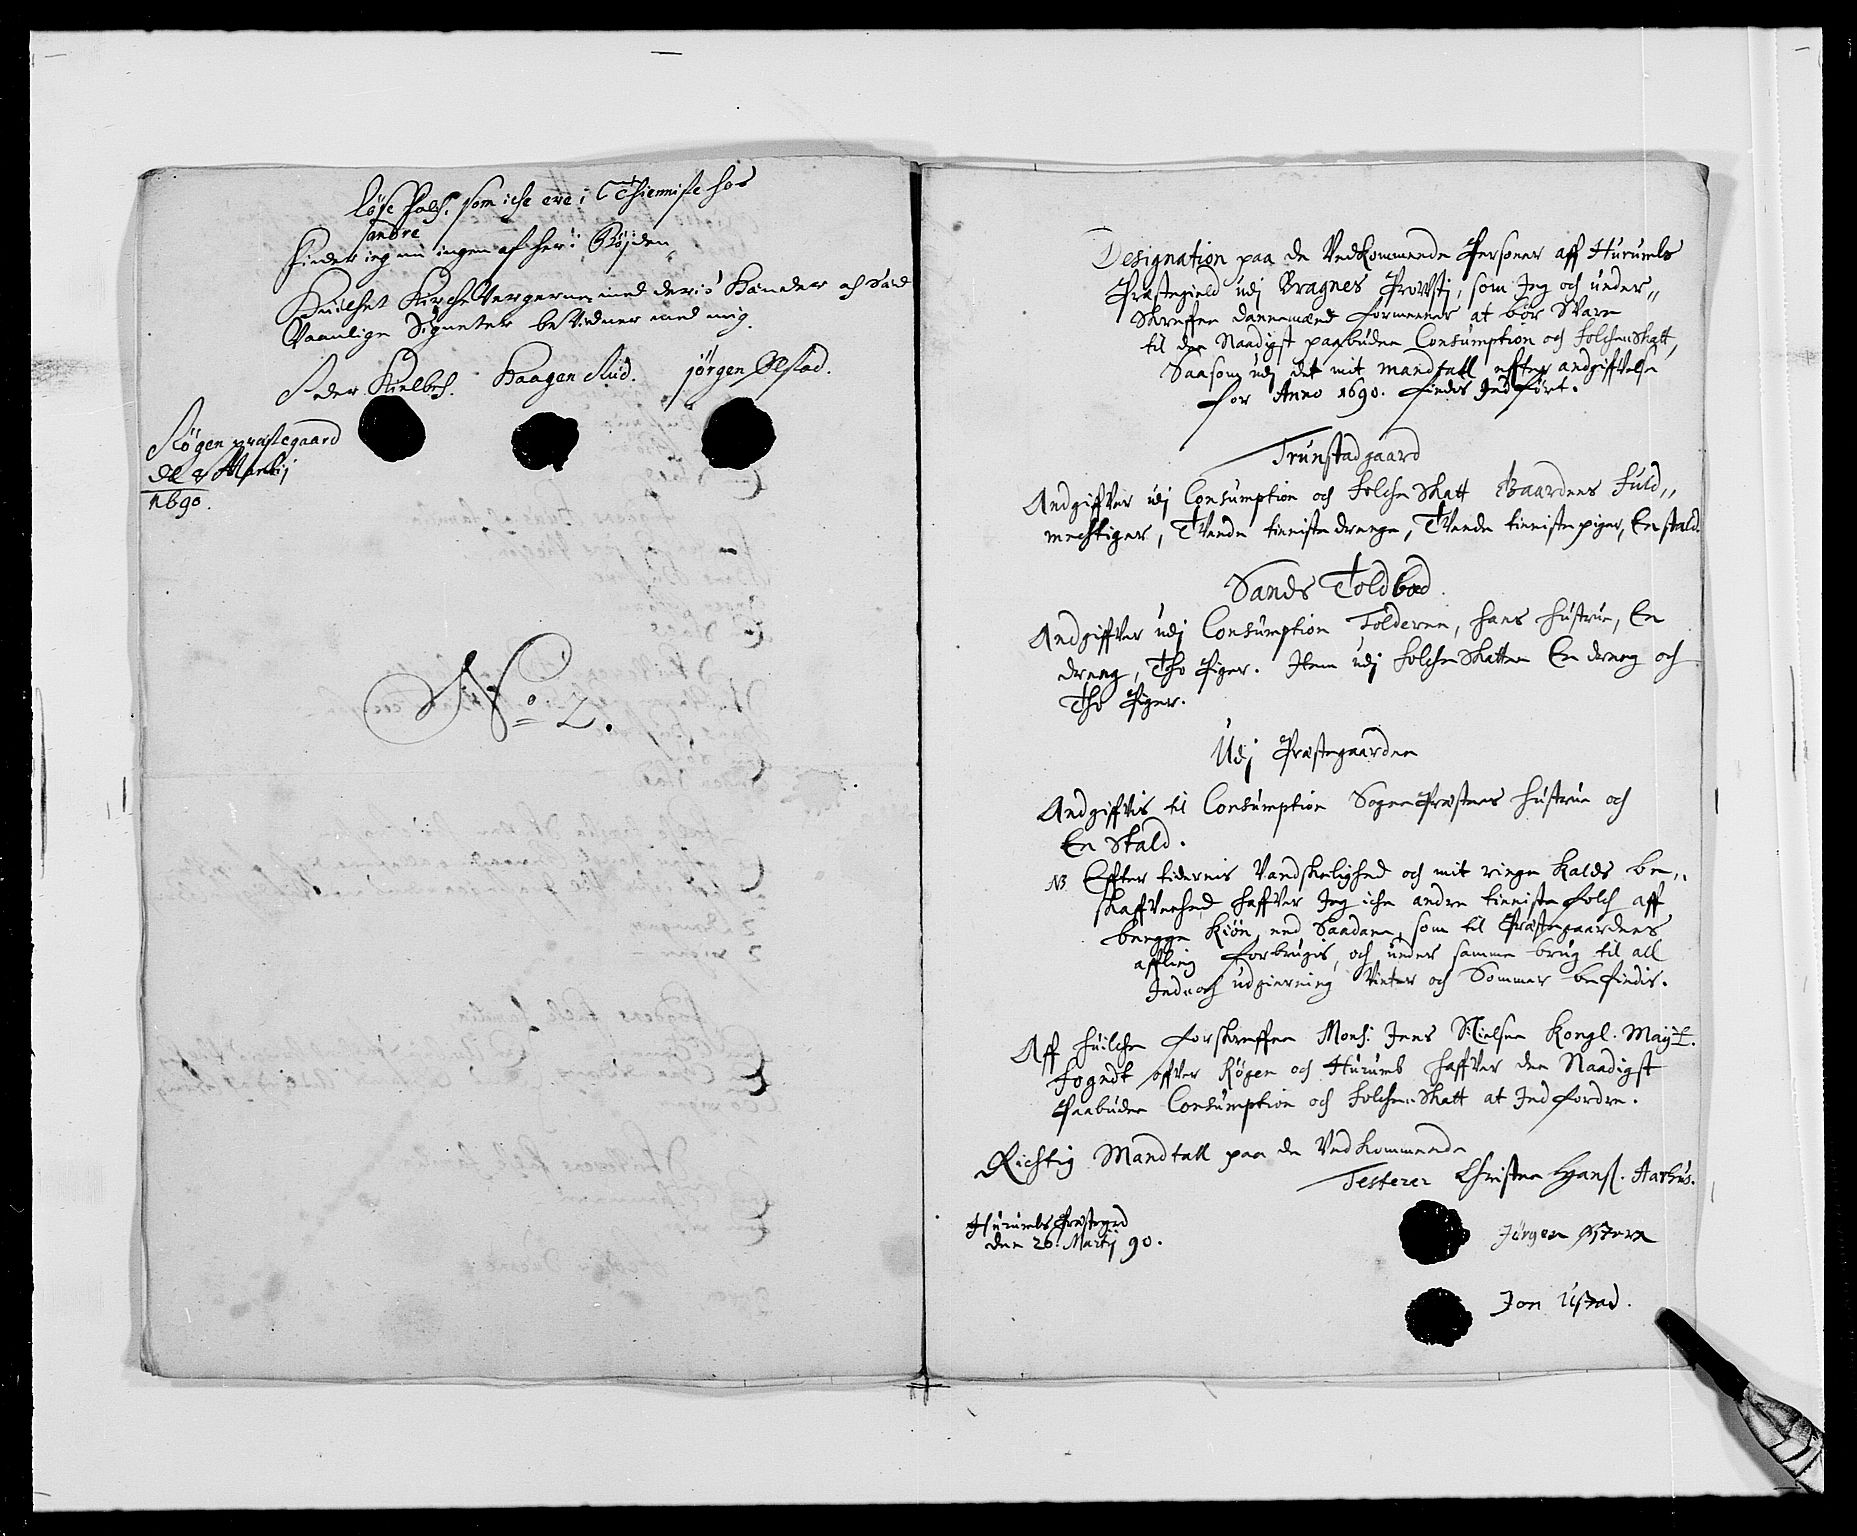 løse Folch, som iche ere i Thienniste hos
andre
Finder ieg nu ingen af her i Bøjden
Huilchet Kirche Vergerne med deris Hænder och Sæd
Vaanlige Signeter beVidner med mig.
Peder Kielbch. Haagen Rud. jørgen Olstad.
Røgen præstegaard
dl 8 Martij
1690.
No 2.
Designation paa de VedKommende Personer aff Hurumbs
Præstegield udj Bragnes Prowstj, som Jeg och under„
Skreffne dannemænd formeener at bør Svare
til den Naadigst paabudne Consumption och FolcheSkatt,
Saasom udj det mit mandtall effter andgiffvelse
for Anno 1690. findes Indført.
Trunstadgaard
Andgiffver udj Consumption och Folche Skatt Gaardens Fuld„
mechtiger, Tvende tienistedrenge, Tvende tienistepiger, En stald.
Sands Toldbod.
Andgiffver udj Consumption Tolderen, hans hustrue, En
dreng, Tho Piger. Item udj FolcheSkatten En dreng och
Tho Piger.
Udj Præstegaarden
Andgiffvis til Consumption SognePræstens hustrue och
En Stald.
NB Effter tidernis Vandskelighed och mit ringe Kalds be„
skaffvenhed haffver Jeg iche andre tieniste folch aff
beegge Kiøn, end Saadane, som til Præstegaardens
affling forbrugis, och under samme brug til all
Inde och udgierning Vinter och Sommer befindis.
Aff huilche forskreffne Mons: Jens Nielsen Kongl. Mayt.
fogedt offver Røgen och Hurumb haffver den Naadigst
Paabudne Consumption och Folche Skatt at Indfordre.
Richtig Mandtall paa de VedKommende
Testerer Christen Hansß. Aarhus.
Hurumbs Præstegrd
den 26. Martij 90.
Jørgen Østern
Jon Ustad.